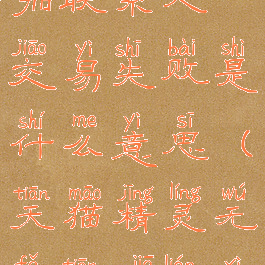 jiāo yì shī bài shì
交易失败是
shí me yì sī
什么意思（
tiān māo jīng líng wú
天猫精灵无